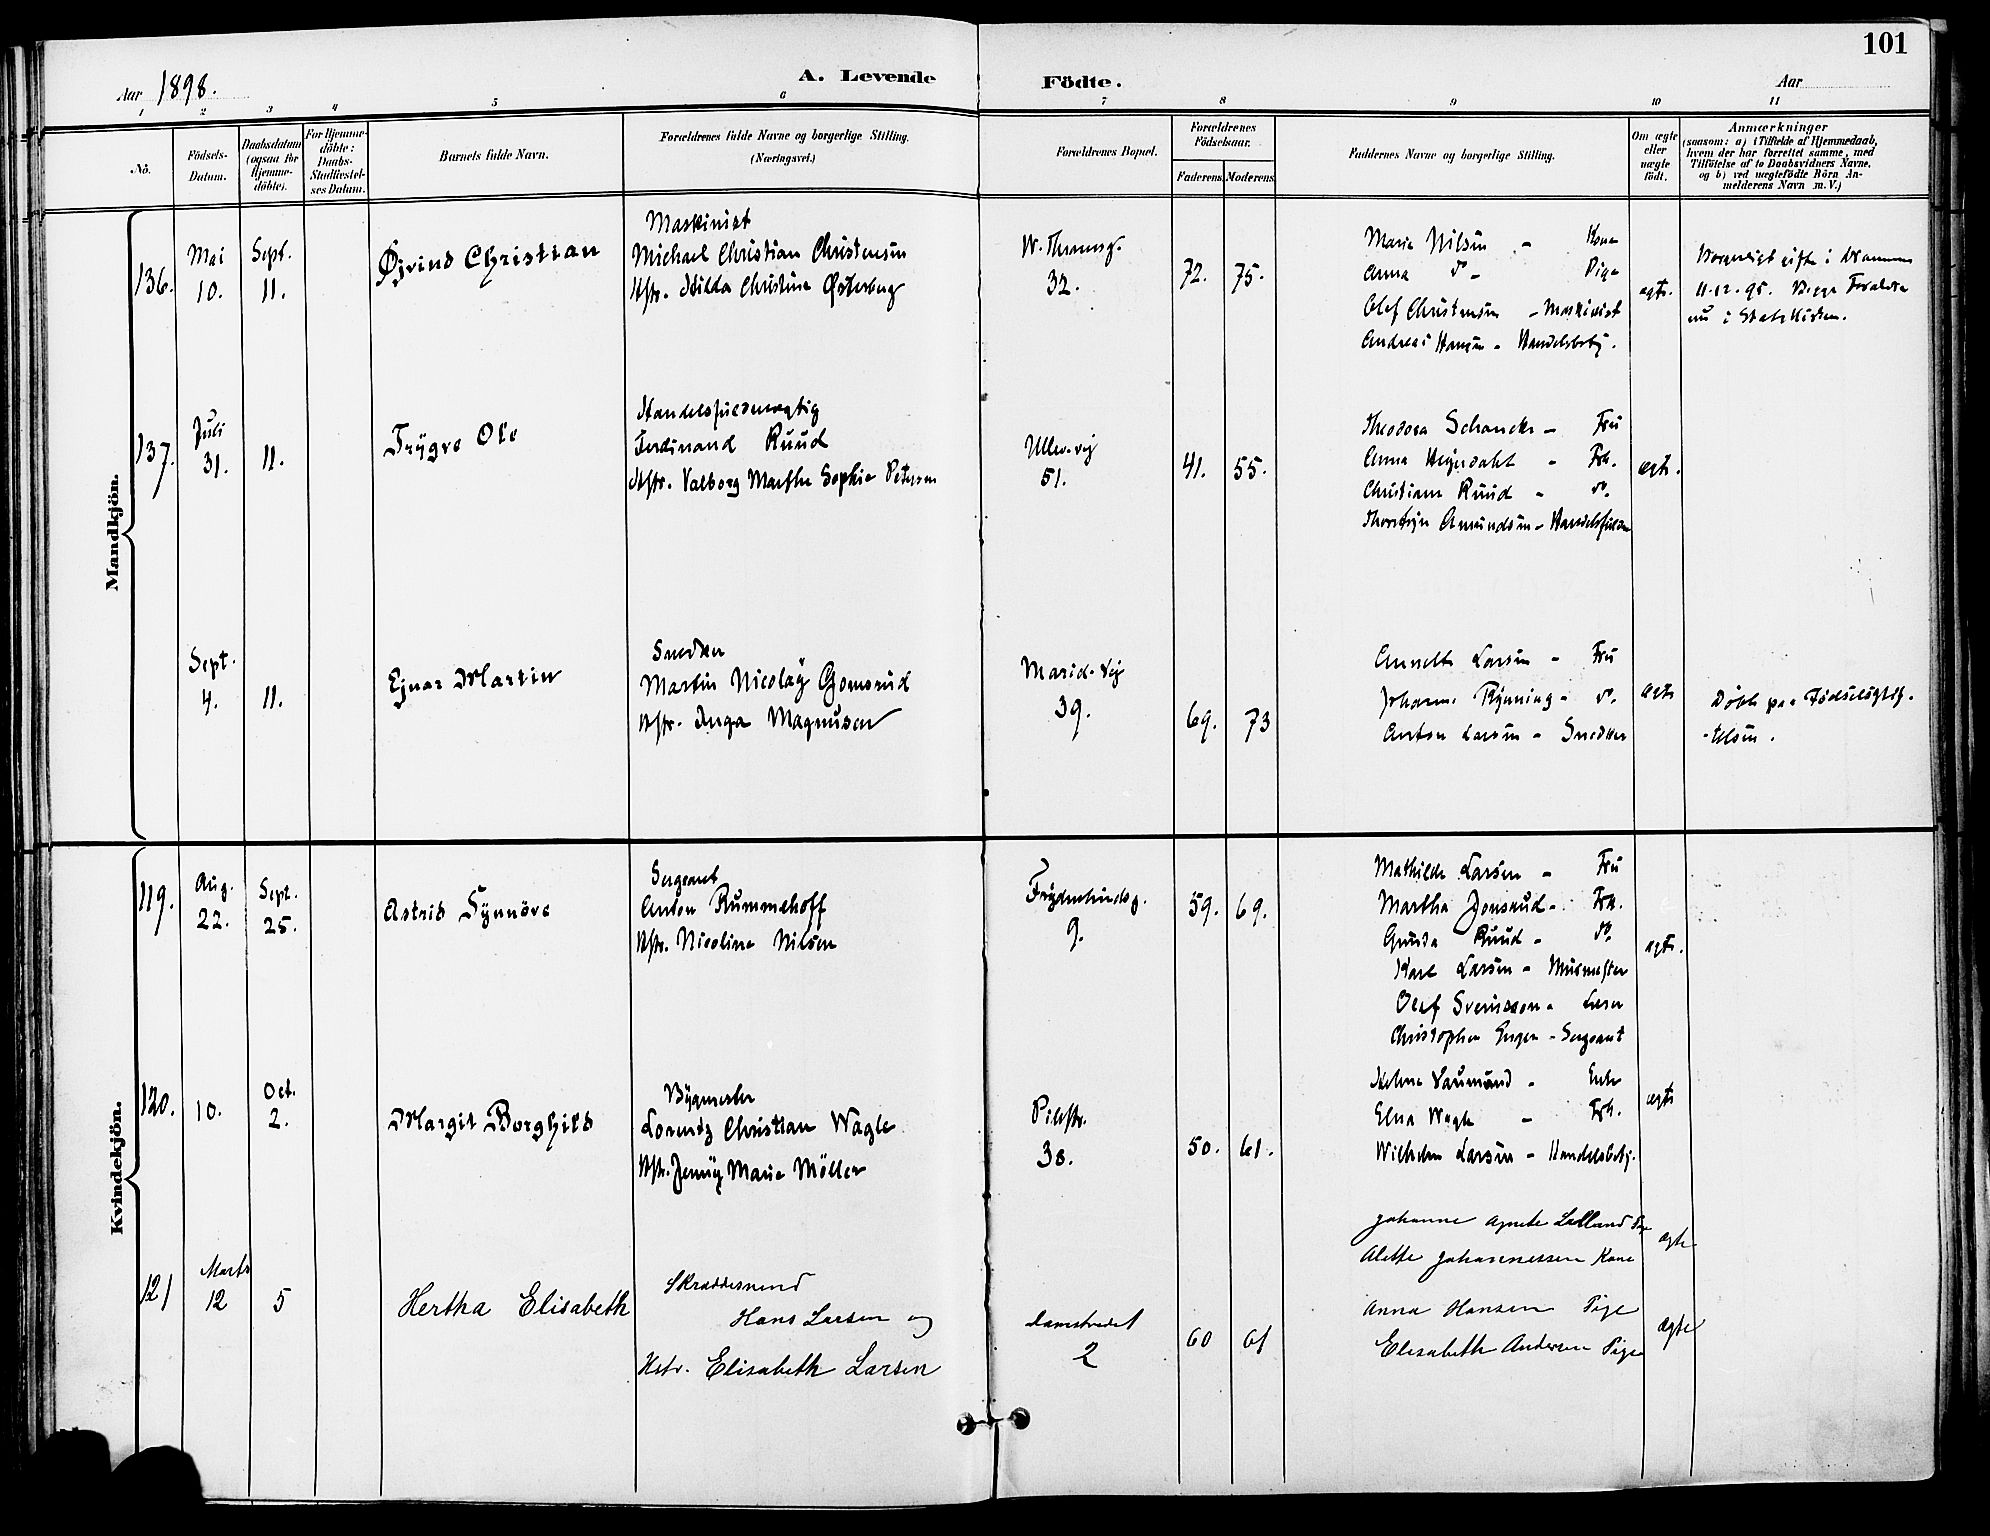 101
Aar 1898. A. Levende Födte. Aar
1 2 3 4 5 6 7 8 9 10 11
No.
Födsels-
Datum.
Daabsdatum
(ogsaa for
Hjemme-
döbte).
For Hjemme-
döbte:
Daabs-
Stadfæstel-
ses Datum.
Barnets fulde Navn.
Forældrenes fulde Navne og borgerlige Stilling.
(Næringsvei.)
Forældrenes Bopæl.
Forældrenes
Födselsaar.
Faderens. Moderens.
Faddernes Navne og borgerlige Stilling.
Om ægte
eller
uægte
födt.
Anmærkninger
(saasom: a) i Tilfælde af Hjemmedaab,
hvem der har forrettet samme, med
Tilföielse af to Daabsvidners Navne,
og b) ved uægtefödte Börn An-
melderens Navn m. V.)
Mandkjön.
136.
Mai
10.
Sept.
11.
Øjvind Christian
Maskinist
Michael Christian Christensen
Hstr. Hilda Christine Østerberg
32.
72. 75.
Marie Nilsen - Kone
Anna do - Pige
Olef Christensen - Maskinist
Andreas Hansen - Handelsbetj.
ægte.
Borgerligt gifte i Drammen
11-12-95. Begge Forældre
nu i Statskirken.
137.
Juli
31.
11.
Trygve Ole
Handelsfuldmægtig
Ferdinand Ruud
Hstr. Valborg Marthe Sophie Petersen
Ullev.vej
51.
41. 55.
Theodora Schancke - Fru
Anna - Frk.
Christiane Ruud - do.
Amundsen - Handelsfuldm
ægte.
Sept.
4.
11.
Ejnar Martin
Snedker
Martin Nicolay Gomsrud
Hstr. Inga Magnusen
Marid.vej
39.
69. 73
Annette Larsen - Fru
Johanne Rynning - do.
Anton Larsen - Snedker
ægte
Døbt paa Fødselsstif-
telsen.
Kvindekjön.
119.
Aug.
22.
Sept.
25.
Astrid Synnöve
Sergeant
Anton Rummelhoff
Hstr. Nicoline Nilsen
Frydenlundsg.
9.
59. 69.
Mathilde Larsen - Fru
Martha Jonsrud - Frk.
Gunda Ruud - do.
Karl Larsen - Murmester
Olaf Svensson -
Christopher - Sergeant
ægte.
120.
10.
Oct.
2.
Margit Borghild
Bygmester
Lorentz Christian Wagle
Hstr. Jenny Marie Möller
Pilestr.
38.
50. 61.
Helene - Enke
Elna Wagle - Frk.
Wilhelm Larsen - Handelsbetj.
ægte
121
Marts
12
5
Hertha Elisabeth
Skræddersvend
Hans Larsen og
Hstr. Elisabeth Larsen
Damstrædet
2
60 61
Johanne Agnete Lolland Pige
Alette Johannessen Kone
ægte
Anna Hansen Pige
Elisabeth Andersen Pige
ægte